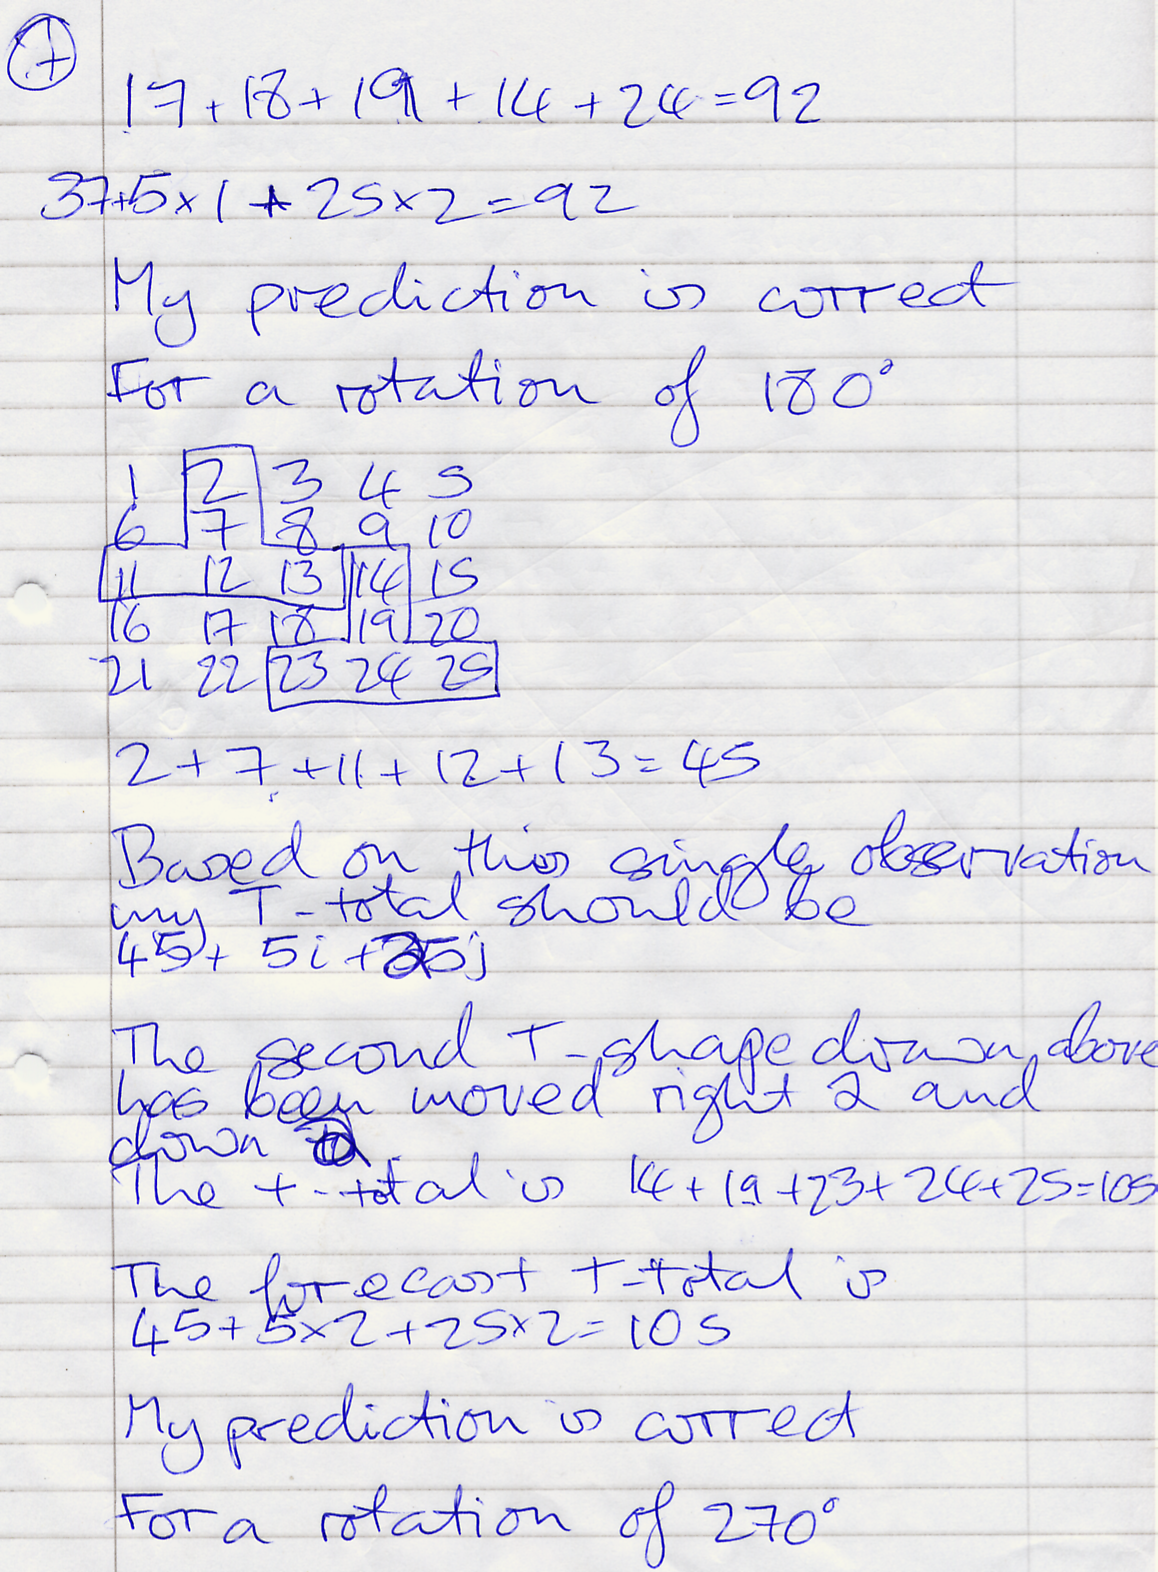 7
17 + 18 + 19 + 14 + 24 = 92
37+5×1 + 25×2 = 92
My prediction is correct
For a rotation of 180°
1 2 3 4 5
6 7 8 9 10
11 12 13 14 15
16 17 18 19 20
21 22 23 24 25
2 + 7 + 11 + 12 + 13 = 45
Based on this single observation
my T-total should be
45 + 5i + 25j
The second T-shape drawn above
has been moved right 2 and
down
The t-total is 14 + 19 + 23 + 24 + 25 = 105
The forecast T-total is
45 + 5×2 + 25×2 = 105
My prediction is correct
For a rotation of 270°